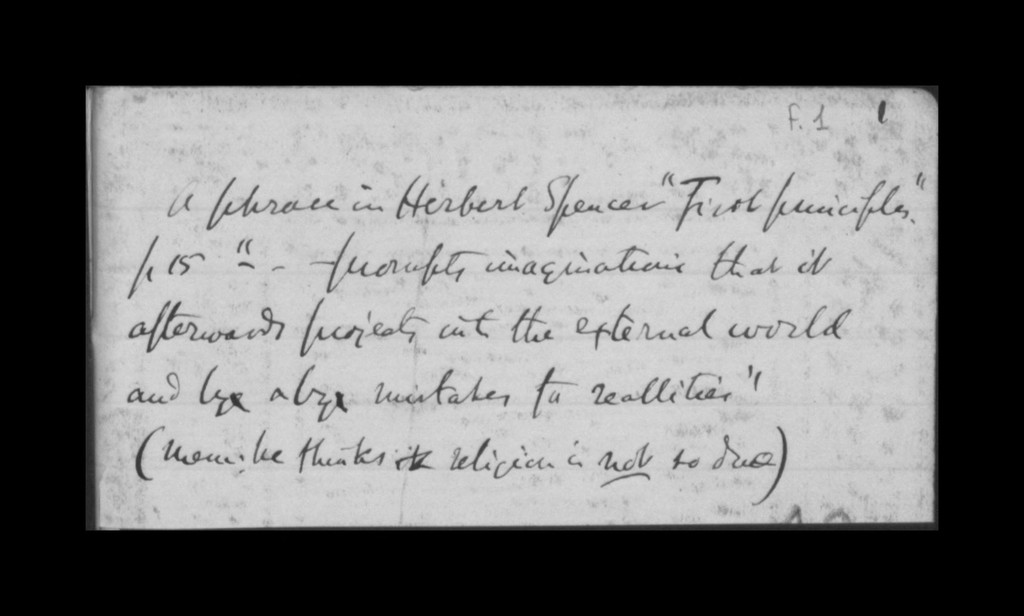 F. 1 1
A phrase in Herbert Spencer "First principles."
p 15 "– - prompts imaginations that it
afterwards projects into the external world
and bye abye mistakes for reallities"
(mem: he thinks religion is not so due)